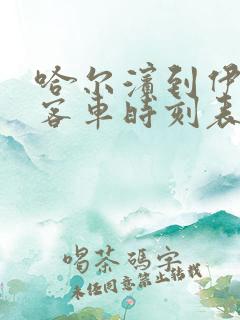 哈尔滨到伊
客车时刻表
喝茶码字
未经同意禁止转载